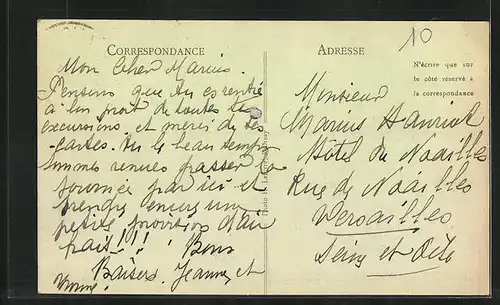 CORRESPONDANCE
Mon Cher Marius.
Pensons que tu es rentré
à bon port de toutes tes
excursions et merci de tes
cartes. Vu le beau temps
sommes venues passer la
journée par ici et
prendre encore un
petite provision d'air
pais!!! Bons
Baisers. Jeanne et
Yvonne.
ADRESSE
10
N'écrire que sur
le côté réservé à
la correspondance
Monsieur
Marius Hanriot
Hôtel de Noailles
Rue de Noailles
Versailles
Seine et Oise